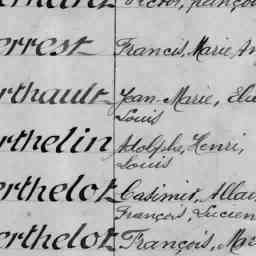 errest Francis, Marie, An
erthault Jean-Marie, Elie
Louis
erthelin Adolphe, Henri,
Louis
erthelot Casimir, Allai
François, Lucien
erthelot François, Mar